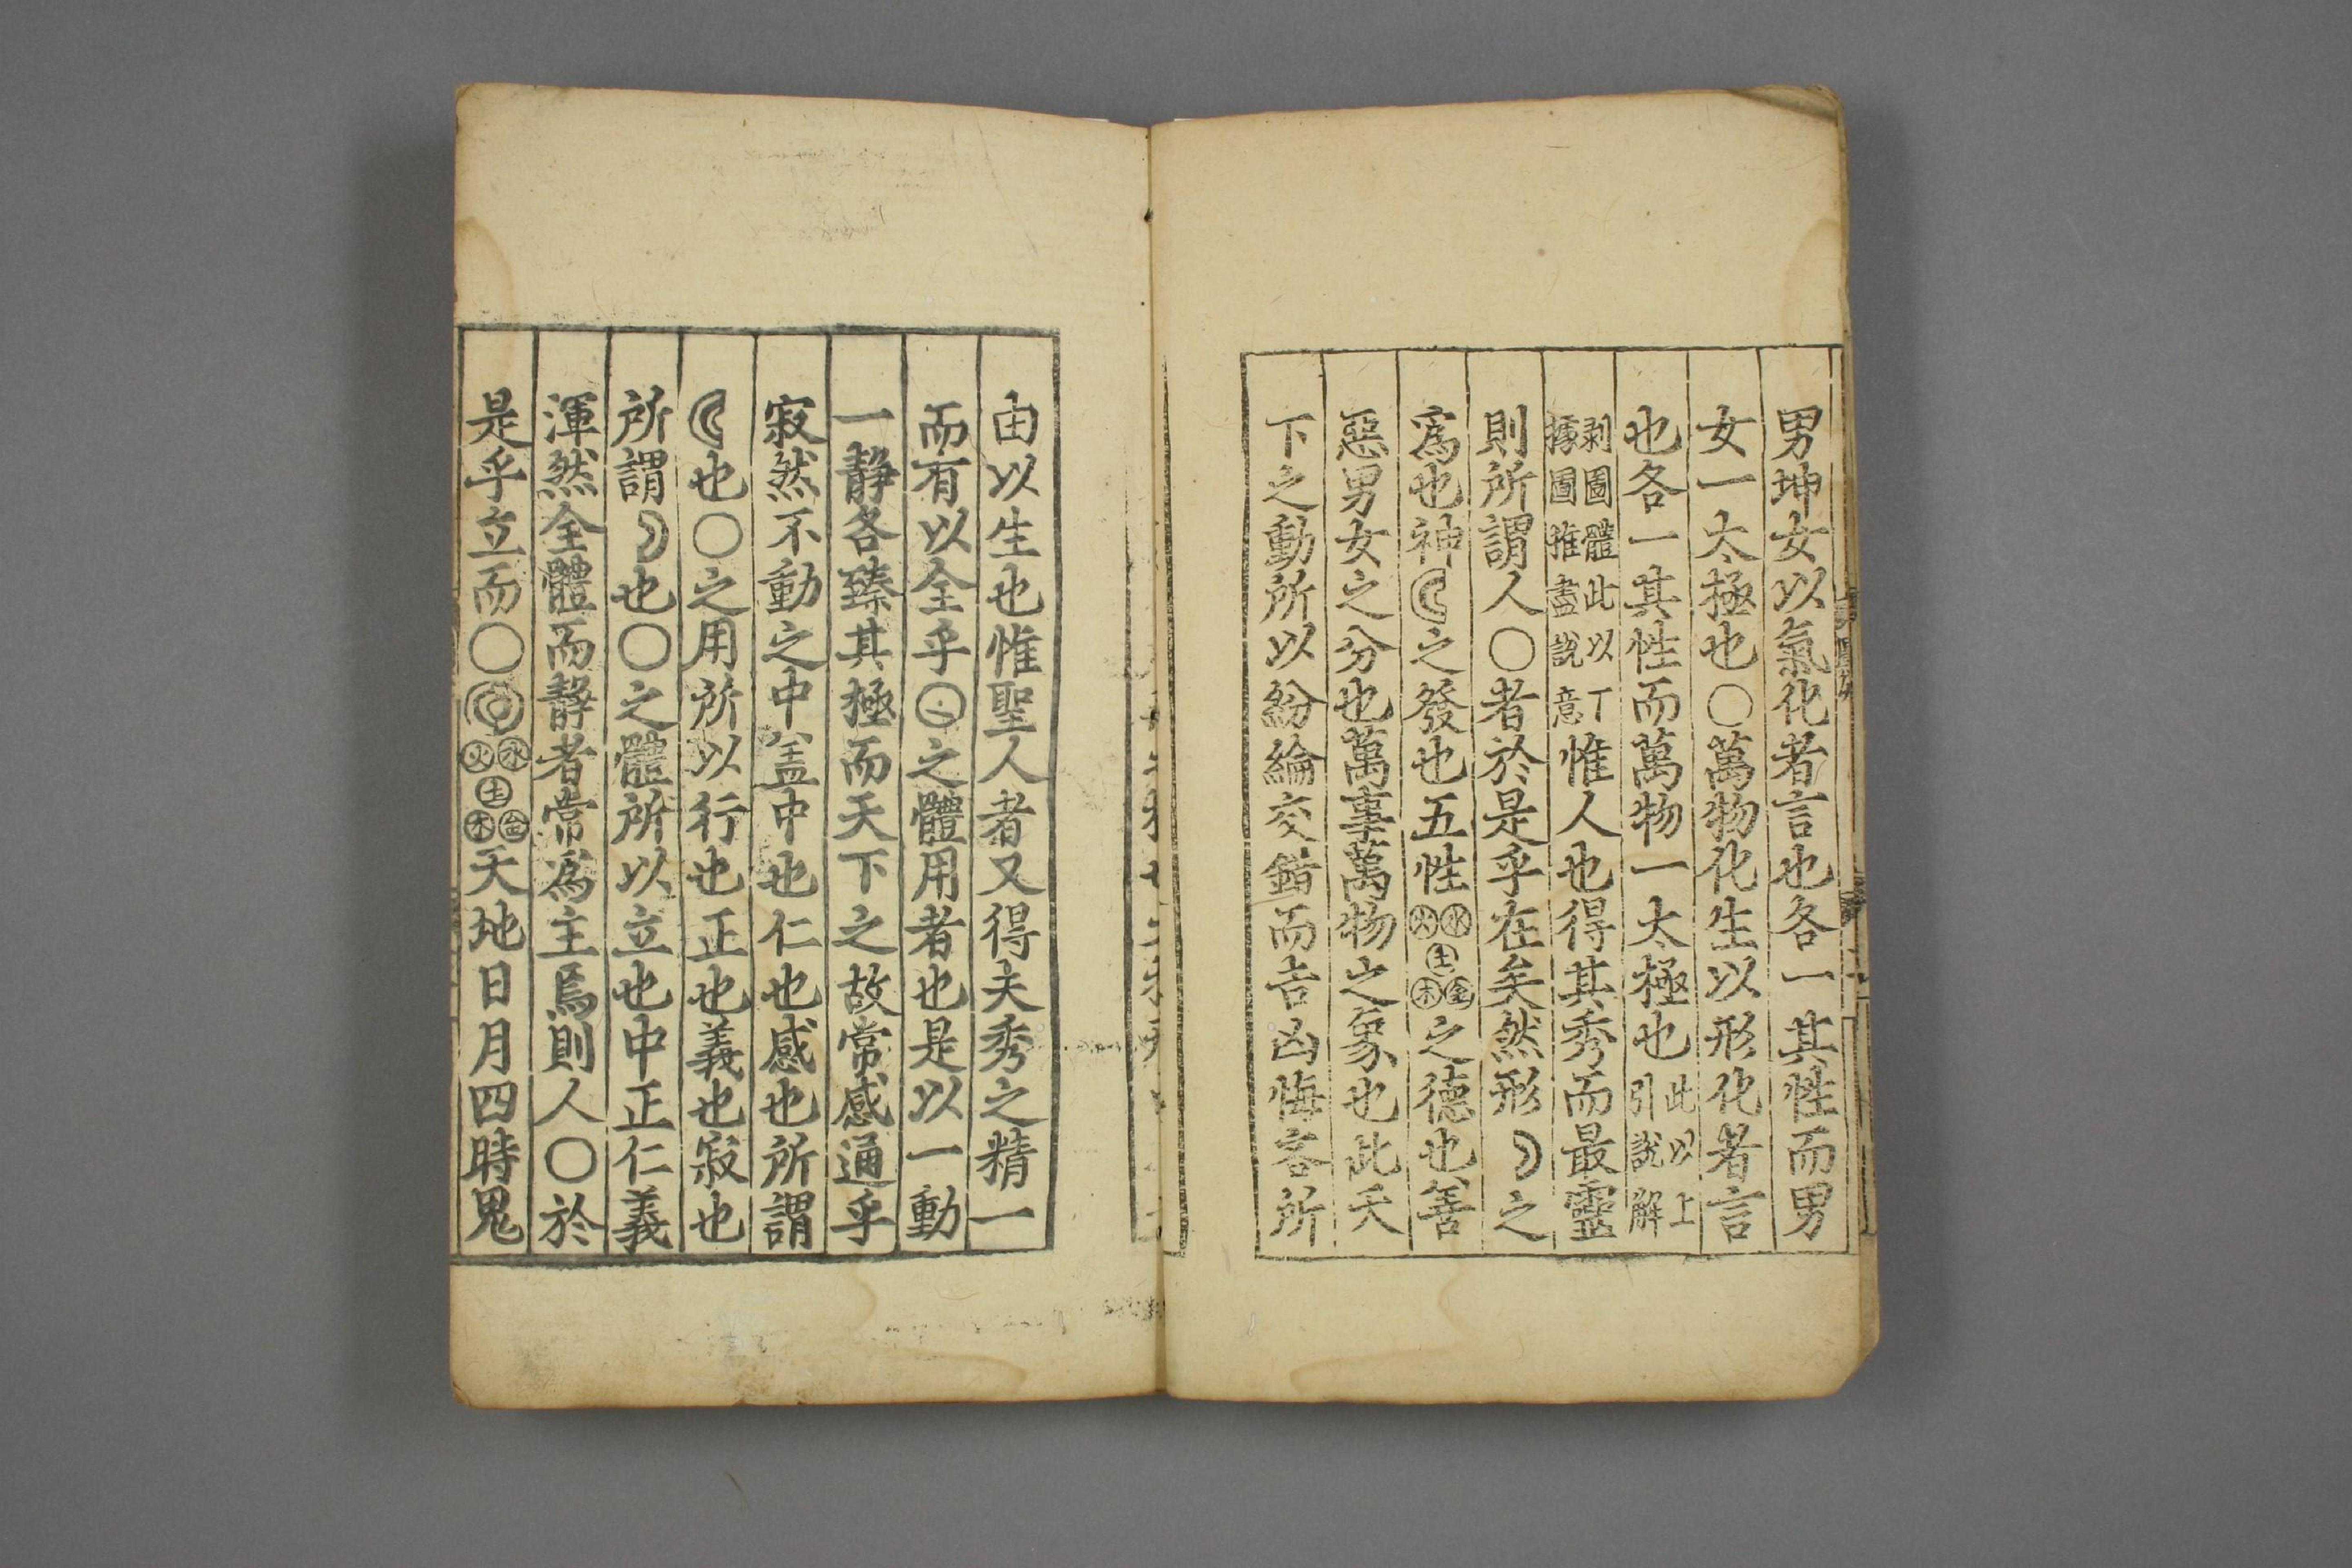 男坤女以氣化者言也各一其性而男
女一太極也〇萬物化生以形化者言
也各一其性而萬物一太極也此以上引說解
剥圖體此以丁據圖推盡說意惟人也得其秀而最靈
則所謂人〇者於是乎在矣然形☽之
爲也神☾之發也五性水火土金木之德也善
惡男女之分也萬事萬物之象也此天
下之動所以紛綸交錯而吉凶悔吝所
由以生也惟聖人者又得夫秀之精一
而有以全乎〇之體用者也是以一動
一靜各臻其極而天下之故常感通乎
寂然不動之中盖中也仁也感也所謂
☾也〇之用所以行也正也義也寂也
所謂☽也〇之體所以立也中正仁義
渾然全體而靜者常爲主焉則人〇於
是乎立而〇◎水火土金木天地日月四時鬼